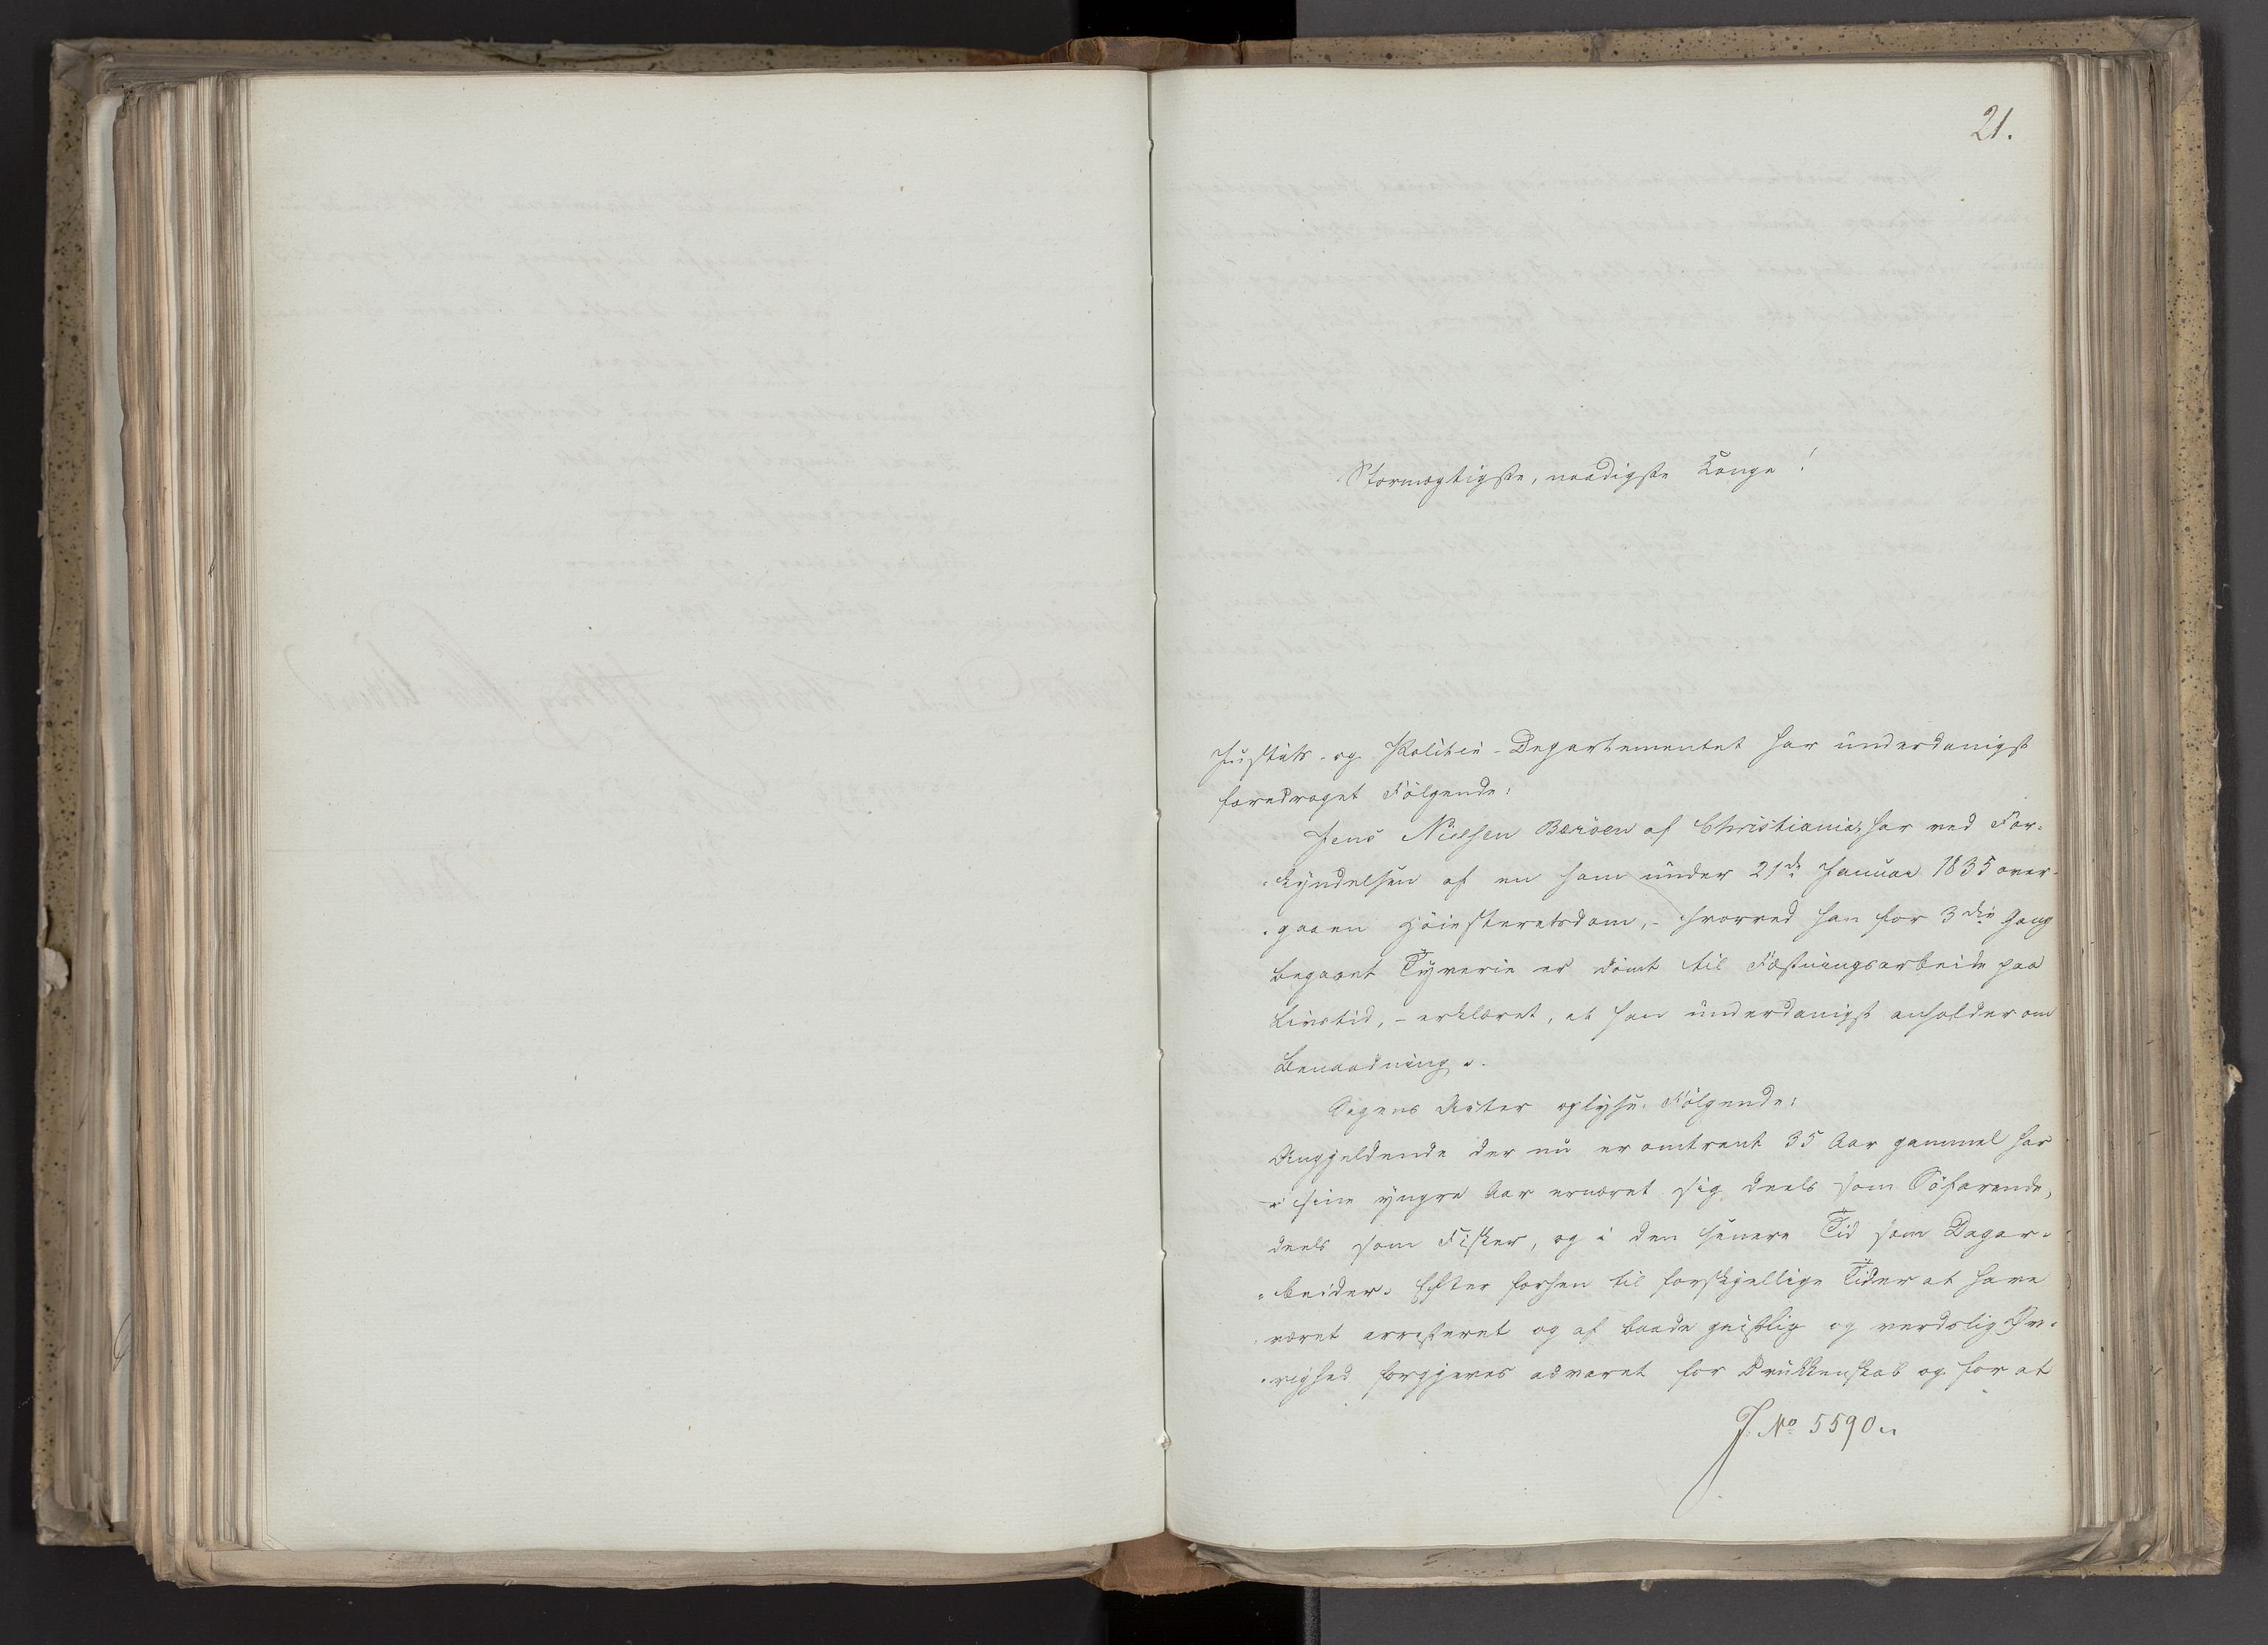 21.
Stormægtigste, naadigste Konge!
Justits- og Politie-Departementet har underdanigst
foredraget Følgende:
Jens Nielsen Berøen af Christiania, har ved For-
kyndelsen af en ham under 21de Januar 1835 over-
gaaen Høiesteretsdom, - hvorved han for 3die Gang
begaaet Tyverie er dömt til Fæstningsarbeide paa
Livstid, - erklæret, at han underdanigst anholder om
Benaadning.
Sagens Acter oplyse Følgende:
Angjeldende der nu er omtrent 35 Aar gammel har
i sine yngre Aar ernæret sig deels som Söfarende,
deels som Fisker, og i den senere Tid som Dagar-
beider. Efter forhen til forskjellige Tider at have
været arresteret og af baade geistlig og verdslig Øv-
righed forgjeves advaret for Drukkenskab og for at
J. No 5590.